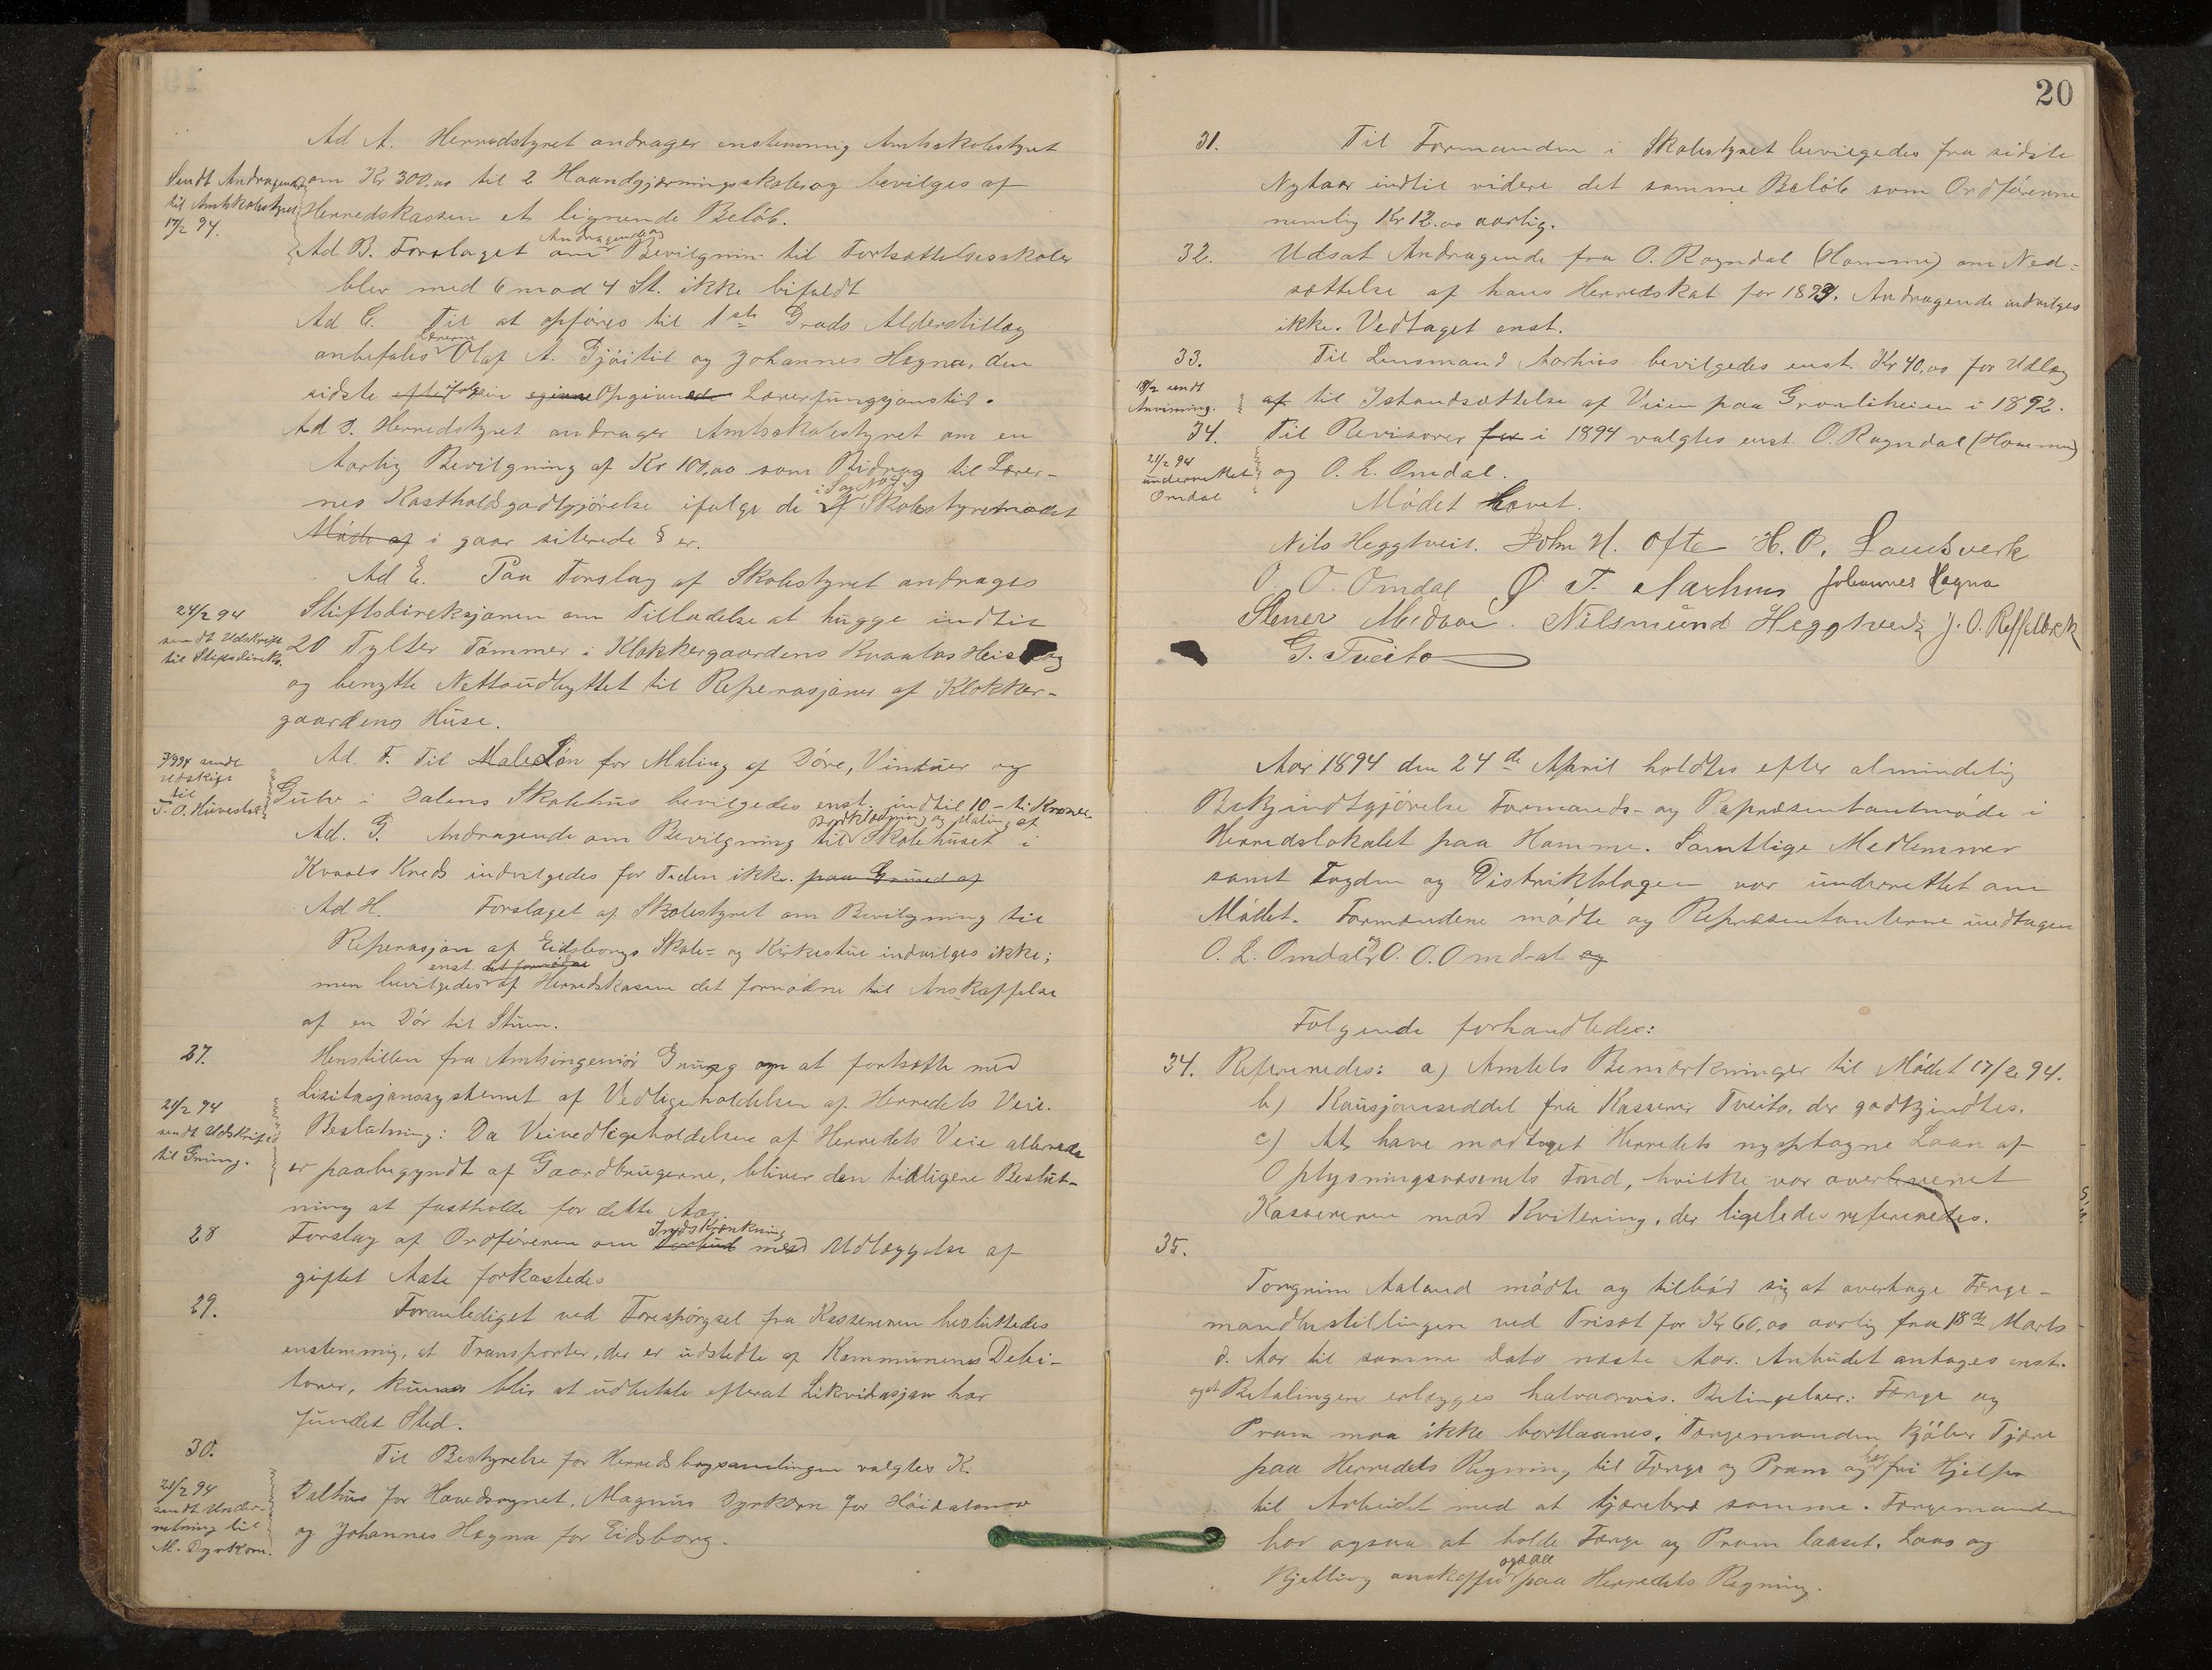 Ad A. Herredstyret andrager enstemmig Amtsskolestyret
Sendt Andragende
til Amtskolestyret
17/2 94.
om Kr 300,00 til 2 Haandgjærningsskoler og bevilges af
Herredskassen et lignende Beløb.
Ad B. Forslaget om Andragende og Bevilgnin til Fortsættelsesskoler
blev med 6 mod 4 St. ikke bifaldt
Ad C. Til at opføres til 1ste Grads Alderstillæg
anbefales Lærerne Olaf A. Gjøitil og Johannes Hægna, den
sidste efter ifølge sin egine Opgivende Lærerfungsjonstid.
Ad D. Herredstyret andrager Amtsskolestyret om en
Aarlig Bevilgning af Kr 101,00 som Bidrag til Lærer-
nes Kostholdsgodtgjørelse ifølge de i Sag No 1 af Skolestyremødet
Møde af i gaar siterede § er.
Ad E. Paa Forslag af Skolestyret andrages
24/2 94
sendt Udskrift
til Stiftsdireks.
Stiftsdireksjonen om Tilladelse at hugge indtil
20 Tylfter Tømmer i Klokkergaardens Kvaalas Heis
og benytte Nettoudbyttet til Reperasjoner af Klokker-
gaardens Huse.
sendt
Udskrift
til
T. O. Huvestad
Ad. F. Til MaleLøn for Maling af Døre, Vinduer og
Gulv i Dalens Skolehus bevilgedes enst. indtil 10 - ti Kroner.
Ad. G. Andragende om Bevilgning til Bordklædning og Maling af Skolehuset i
Kvaals Kreds indvilgedes for Tiden ikke. paa Grund af
Ad H. Forslaget af Skolestyret om Bevilgning til
Reperasjon af Eidsborgs Skole- og Kirkestue indvilges ikke;
men bevilgedes enst. det fornødne af Herredskassen det fornødne til Anskaffelse
af en Dør til Stuen.
27. Henstillen fra Amtsingeniør Grung om at fortsætte med
Lisitasjonssystemet af Vedligeholdelsen af Herredets Veie.
21/2 94
sendt Udskrift
til Grung.
Beslutning: Da Veivedligeholdelsen af Herredets Veie allerede
er paabegyndt af Gaardbrugerne, bliver den tidligere Beslut-
ning at fastholde for dette Aar
28 Forslag af Ordføreren om Forbud Indskrænkning med Udlæggelse af
giftet Aate forkastedes
29. Foranlediget ved Forespørgsel fra Kassereren besluttedes
enstemmig, at Transporter, der er udstedte af Kommunens Debi-
torer, kunes blir at udbetale efterat Likvidasjon har
fundet Sted.
30. Til Bestyrelse for Herredsbogsamlingen valgtes K.
21/2 94
sendt Under-
retning til
M. Dyrkorn.
Dalhus for Hovedsognet, Magnus Dyrkorn for Høidalsmo
og Johannes Hægna for Eidsborg.
20
31. Til Formanden i Skolestyret bevilgedes fra sidste
Nytaar indtil videre det samme Beløb som Ordførerne
nemlig Kr 12.00 aarlig.
32. Udsat Andragende fra O. Rogndal (Homme) om Ned-
sættelse af hans Herredskat for 1893. Andragende indvilges
ikke. Vedtaget enst.
33. Til Lensmand Aarhus bevilgedes enst. Kr 40,00 for Udlæg
18/2 sendt
Anvisning.
af til Istandsættelse af Veien paa Grovliheien i 1892.
34. Til Revisorer for i 1894 valgtes enst. O. Rogndal (Homme)
21/2 94
underrettet
Omdal
og O. L. Omdal.
Mødet hævet.
Nils Heggtveit. John H. Ofte H. O. Landsverk
O. O. Omdal Ø. T. Aarhus Johannes Hægna
Stener Midbøe. Nilsmund Heggtveit J. O. Rafftbæk
G. Tveito
Aar 1894 den 24de April holdtes efter almindelig
Bekjendtgjørelse Formands- og Repræsentantmøde i
Herredslokalet paa Homme. Samtlige Medlemmer
samt Fogden og Distriktslægen var underrettet om
Mødet. Formændene mødte og Repræsentanterne undtagen
O. L. Omdal og O. O. Omdal og
Følgende forhandledes:
34. Refereredes: a) Amtets Bemærkninger til Mødet 17/2 94.
b) Kausjonsseddel fra Kasserer Tveito, der godkjendtes.
c) At have modtaget Herredets nyoptagne Laan af
Oplysningsvæsenets Fond, hvilke var overleveret
Kassereren mod Kvitering, der ligeledes refereredes.
35.
Torgrim Aaland mødte og tilbød sig at overtage Færge-
mandsstillingen ved Trisæt for Kr 60,00 aarlig fra 18de Marts
d. Aar til samme Dato næste Aar. Anbudet antages enst.
og at Betalingen erlægges halvaarvis. Betingelser: Færge og
Pram maa ikke bortlaanes. Færgemanden kjøber Tjære
paa Herredets Regning til Færge og Pram og har fri Hjelp
til Arbeidet med at tjærebre samme. Færgemanden
har ogsaa at holde Færge og Pram laaset. Laas og
Kjetting anskaffes ogsaa paa Herredets Regning.